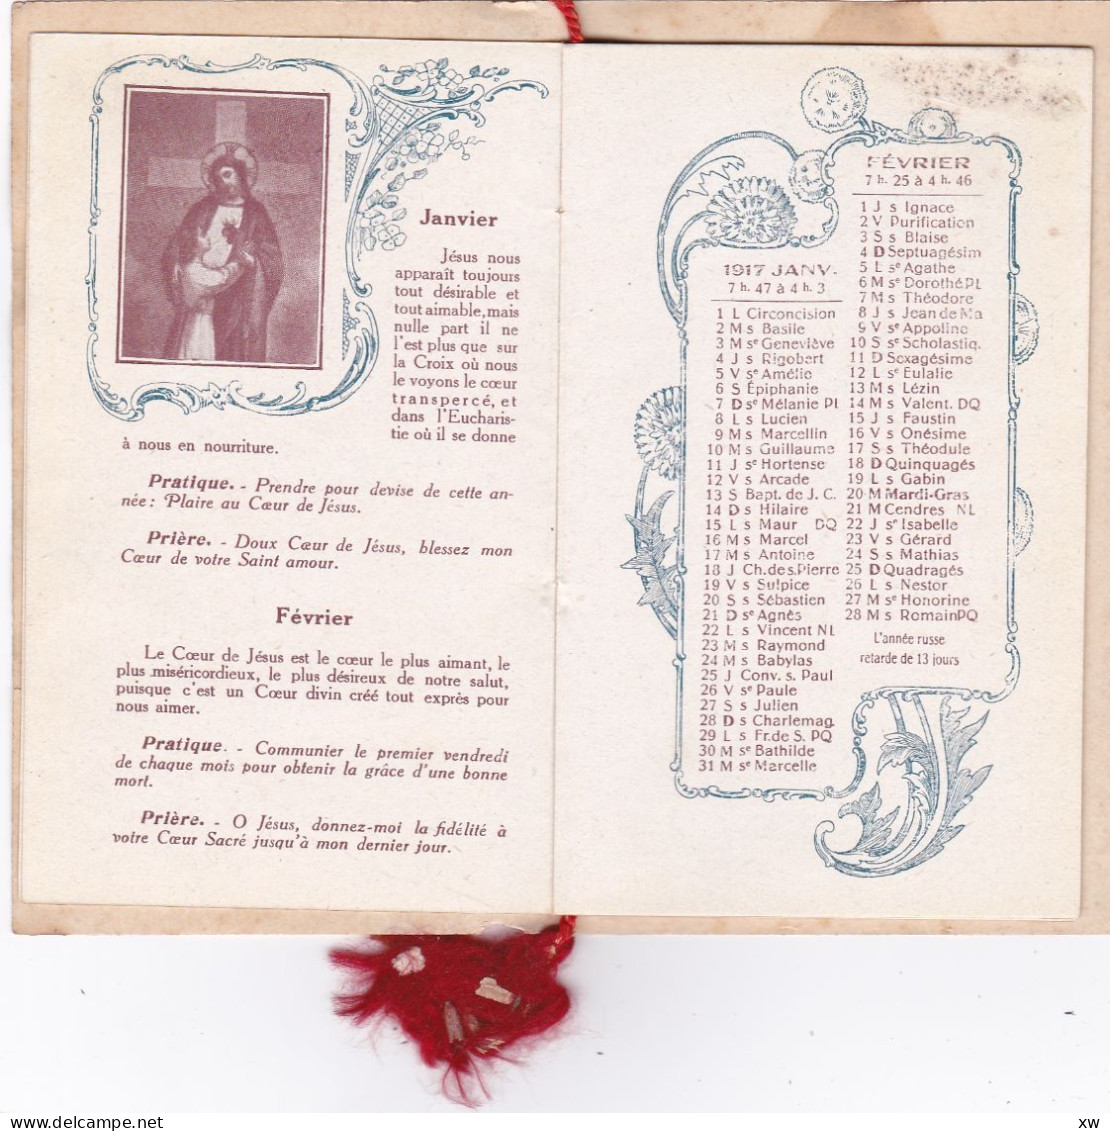 Janvier
Jésus nous
apparaît toujours
tout désirable et
tout aimable, mais
nulle part il ne
l'est plus que sur
la Croix où nous
le voyons le cœur
transpercé, et
dans l'Eucharis-
tie où il se donne
à nous en nourriture.
Pratique. - Prendre pour devise de cette an-
née : Plaire au Cœur de Jésus.
Prière. - Doux Cœur de Jésus, blessez mon
Cœur de votre Saint amour.
Février
Le Cœur de Jésus est le cœur le plus aimant, le
plus miséricordieux, le plus désireux de notre salut,
puisque c'est un Cœur divin créé tout exprès pour
nous aimer.
Pratique. - Communier le premier vendredi
de chaque mois pour obtenir la grâce d'une bonne
mort.
Prière. - O Jésus, donnez-moi la fidélité à
votre Cœur Sacré jusqu'à mon dernier jour.
1917 JANV.
7 h. 47 à 4 h. 3
1 L Circoncision
2 M s Basile
3 M se Geneviève
4 J s Rigobert
5 V se Amélie
6 S Épiphanie
7 D se Mélanie PL
8 L s Lucien
9 M s Marcellin
10 M s Guillaume
11 J se Hortense
12 V s Arcade
13 S Bapt. de J. C.
14 D s Hilaire
15 L s Maur DQ
16 M s Marcel
17 M s Antoine
18 J Ch. de s. Pierre
19 V s Sulpice
20 S s Sébastien
21 D se Agnès
22 L s Vincent NL
23 M s Raymond
24 M s Babylas
25 J Conv. s. Paul
26 V se Paule
27 S s Julien
28 D s Charlemag.
29 L s Fr. de S. PQ
30 M se Bathilde
31 M se Marcelle
FÉVRIER
7 h. 25 à 4 h. 46
1 J s Ignace
2 V Purification
3 S s Blaise
4 D Septuagésim
5 L se Agathe
6 M se Dorothé PL
7 M s Théodore
8 J s Jean de Ma
9 V se Appoline
10 S se Scholastiq.
11 D Sexagésime
12 L se Eulalie
13 M s Lézin
14 M s Valent. DQ
15 J s Faustin
16 V s Onésime
17 S s Théodule
18 D Quinquagés
19 L s Gabin
20 M Mardi-Gras
21 M Cendres NL
22 J se Isabelle
23 V s Gérard
24 S s Mathias
25 D Quadragés
26 L s Nestor
27 M se Honorine
28 M s Romain PQ
L'année russe
retarde de 13 jours
xw